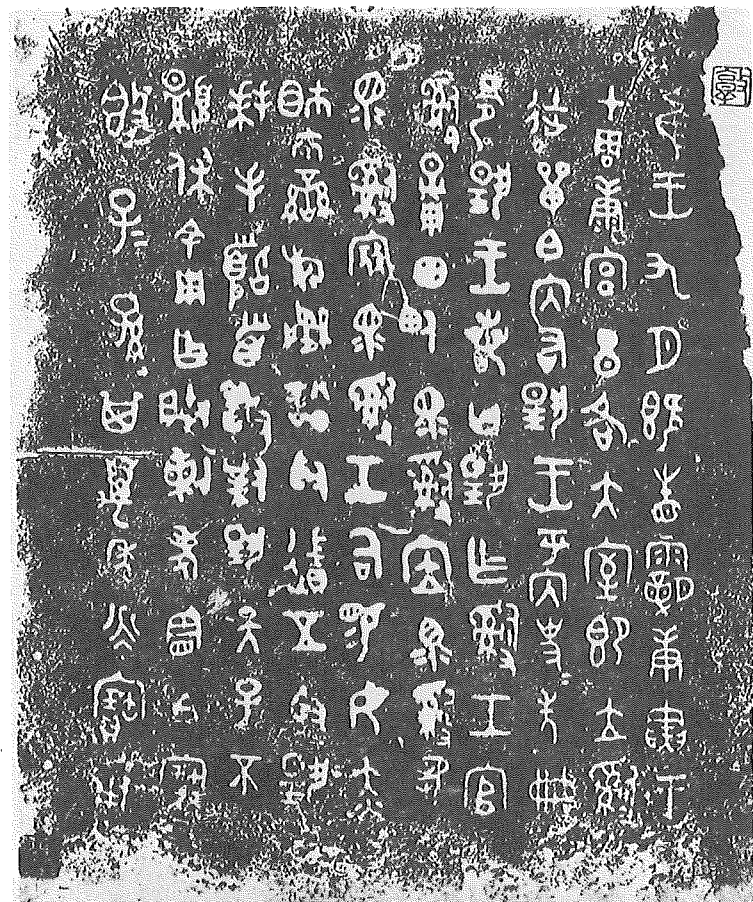 敦
隹王九月既眚霸庚寅王
才周康宮旦各大室即立𤔲
徒單白內右揚王乎內史史冊
令揚王若曰揚乍𤔲工官
𤔲量田甸眔𤔲眔𤔲芻
眔𤔲寇眔𤔲工司易女赤
巿䜌旂訊訟取五寽揚
拜手𩒨首敢對揚天子不
顯休余用乍朕剌考白寶
𣪘子子孫孫其萬年永寶用